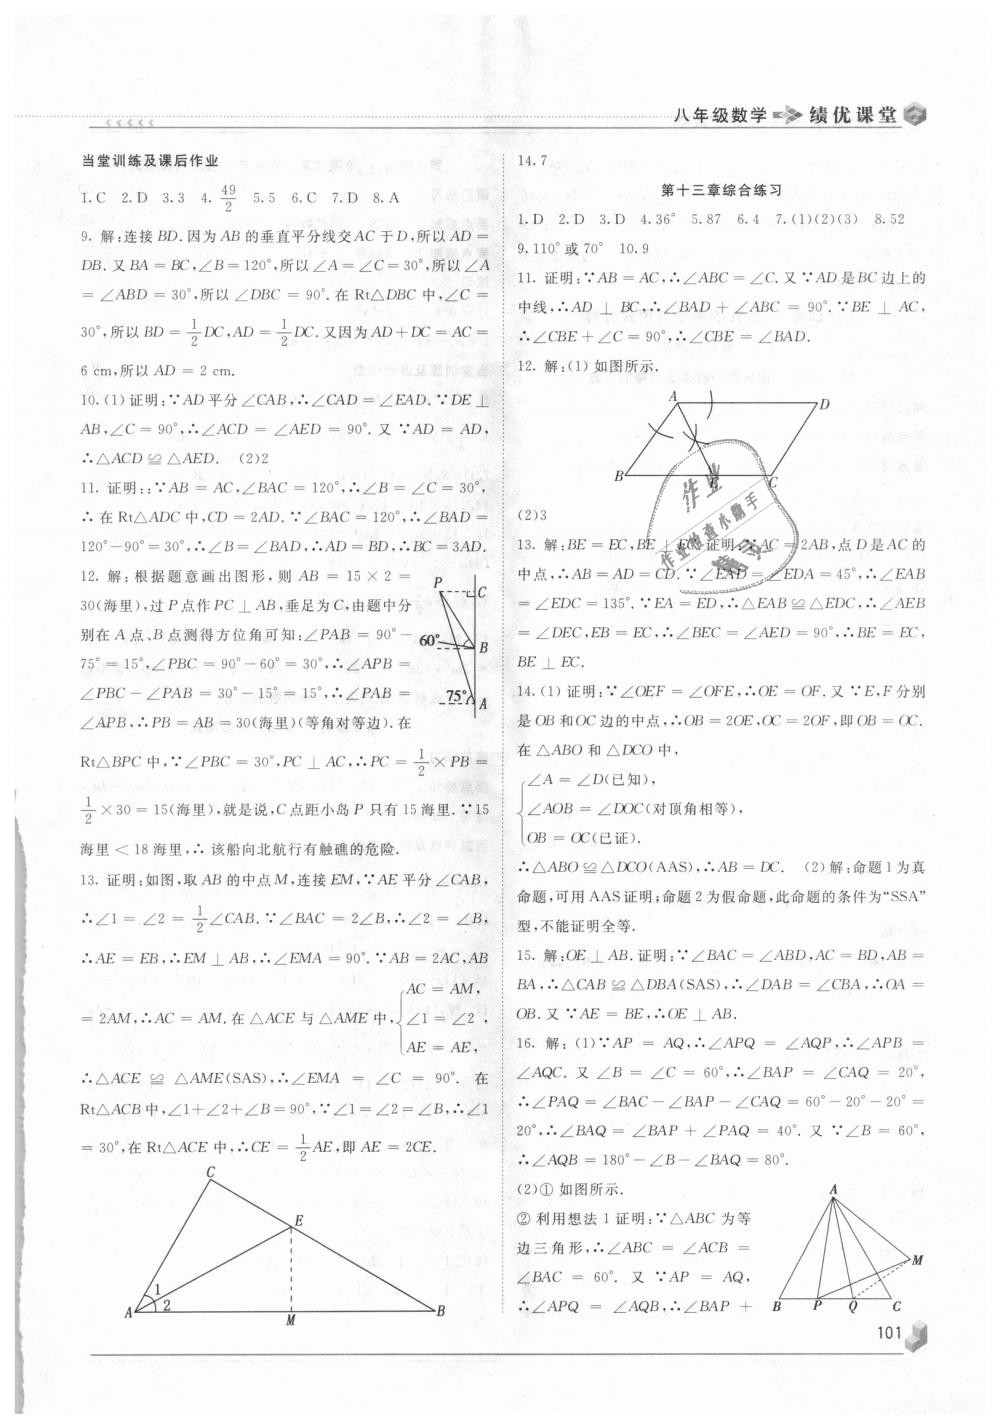 八年级数学 绩优课堂
当堂训练及课后作业
1.C 2.D 3.3 4.49/2 5.5 6.C 7.D 8.A
9. 解:连接 BD.因为 AB 的垂直平分线交 AC 于 D,所以 AD =
DB.又 BA = BC,∠B=120°,所以∠A=∠C=30°,所以∠A
= ∠ABD = 30°,所以 ∠DBC = 90°.在 Rt△DBC 中,∠C =
30°,所以 BD = 1/2 DC,AD = 1/2 DC.又因为 AD+DC = AC =
6 cm,所以 AD = 2 cm.
10.(1) 证明:∵AD 平分∠CAB,∴∠CAD=∠EAD.∵DE⊥
AB,∠C = 90°,∴∠ACD = ∠AED = 90°.又 ∵AD = AD,
∴△ACD ≌ △AED. (2)2
11. 证明::∵AB = AC,∠BAC = 120°,∴∠B = ∠C = 30°,
∴ 在 Rt△ADC 中,CD = 2AD.∵∠BAC = 120°,∴∠BAD =
120°-90°= 30°,∴∠B=∠BAD,∴AD = BD,∴BC = 3AD.
12. 解:根据题意画出图形,则 AB = 15 × 2 =
30(海里),过 P 点作 PC⊥AB,垂足为 C,由题中分
别在 A 点、B 点测得方位角可知:∠PAB = 90°-
75° = 15°,∠PBC = 90°-60° = 30°,∴∠APB =
∠PBC-∠PAB = 30°-15° = 15°,∴∠PAB =
∠APB,∴PB = AB = 30(海里)(等角对等边).在
Rt△BPC 中,∵∠PBC = 30°,PC⊥AC,∴PC = 1/2 × PB =
1/2 ×30 = 15(海里),就是说,C 点距小岛 P 只有 15 海里.∵15
海里 < 18 海里,∴ 该船向北航行有触礁的危险.
P C
60° B
75° A
13. 证明:如图,取 AB 的中点 M,连接 EM,∵AE 平分∠CAB,
∴∠1 = ∠2 = 1/2∠CAB.∵∠BAC = 2∠B,∴∠2 = ∠B,
∴AE = EB,∴EM⊥AB,∴∠EMA = 90°.∵AB = 2AC,AB
= 2AM,∴AC = AM.在△ACE 与△AME 中,
AC = AM,
∠1 = ∠2 ,
AE = AE,
∴△ACE ≌ △AME(SAS),∴∠EMA = ∠C = 90°. 在
Rt△ACB 中,∠1+∠2+∠B = 90°,∵∠1 = ∠2 = ∠B,∴∠1
= 30°,在 Rt△ACE 中,∴CE = 1/2 AE,即 AE = 2CE.
C
E
1
2
A M B
14.7
第十三章综合练习
1.D 2.D 3.D 4.36° 5.87 6.4 7.(1)(2)(3) 8.52
9.110° 或 70° 10.9
11. 证明:∵AB = AC,∴∠ABC = ∠C.又 ∵AD 是 BC 边上的
中线,∴AD ⊥ BC,∴∠BAD + ∠ABC = 90°.∵BE ⊥ AC,
∴∠CBE+∠C = 90°,∴∠CBE = ∠BAD.
12. 解:(1) 如图所示.
A D
B E C
(2)3
13. 解:BE = EC,BE⊥EC.证明:∵AC = 2AB,点 D 是 AC 的
中点,∴AB = AD = CD.∵∠EAD=∠EDA = 45°,∴∠EAB
= ∠EDC = 135°.∵EA = ED,∴△EAB≌△EDC,∴∠AEB
= ∠DEC,EB = EC,∴∠BEC = ∠AED = 90°,∴BE = EC,
BE⊥EC.
14.(1) 证明:∵∠OEF = ∠OFE,∴OE = OF.又∵E,F 分别
是 OB 和 OC 边的中点,∴OB = 2OE,OC = 2OF,即 OB = OC.
在△ABO 和△DCO 中,
∠A = ∠D(已知),
∠AOB = ∠DOC(对顶角相等),
OB = OC(已证).
∴△ABO≌△DCO(AAS),∴AB = DC. (2)解:命题 1 为真
命题,可用 AAS 证明;命题 2 为假命题,此命题的条件为“SSA”
型,不能证明全等.
15. 解:OE⊥AB.证明:∵∠BAC = ∠ABD,AC = BD,AB =
BA,∴△CAB≌△DBA(SAS),∴∠DAB = ∠CBA,∴OA =
OB.又 ∵AE = BE,∴OE⊥AB.
16. 解: (1)∵AP = AQ,∴∠APQ = ∠AQP,∴∠APB =
∠AQC. 又 ∠B = ∠C = 60°,∴∠BAP = ∠CAQ = 20°,
∴∠PAQ = ∠BAC-∠BAP-∠CAQ = 60°-20°-20° =
20°,∴∠BAQ = ∠BAP + ∠PAQ = 40°. 又 ∵∠B = 60°,
∴∠AQB = 180°-∠B-∠BAQ = 80°.
(2)① 如图所示.
② 利用想法 1 证明:∵△ABC 为等
边三角形,∴∠ABC = ∠ACB =
∠BAC = 60°. 又 ∵AP = AQ,
∴∠APQ = ∠AQB,∴∠BAP +
A
M
B P Q C
作业
作业检查小助手
101